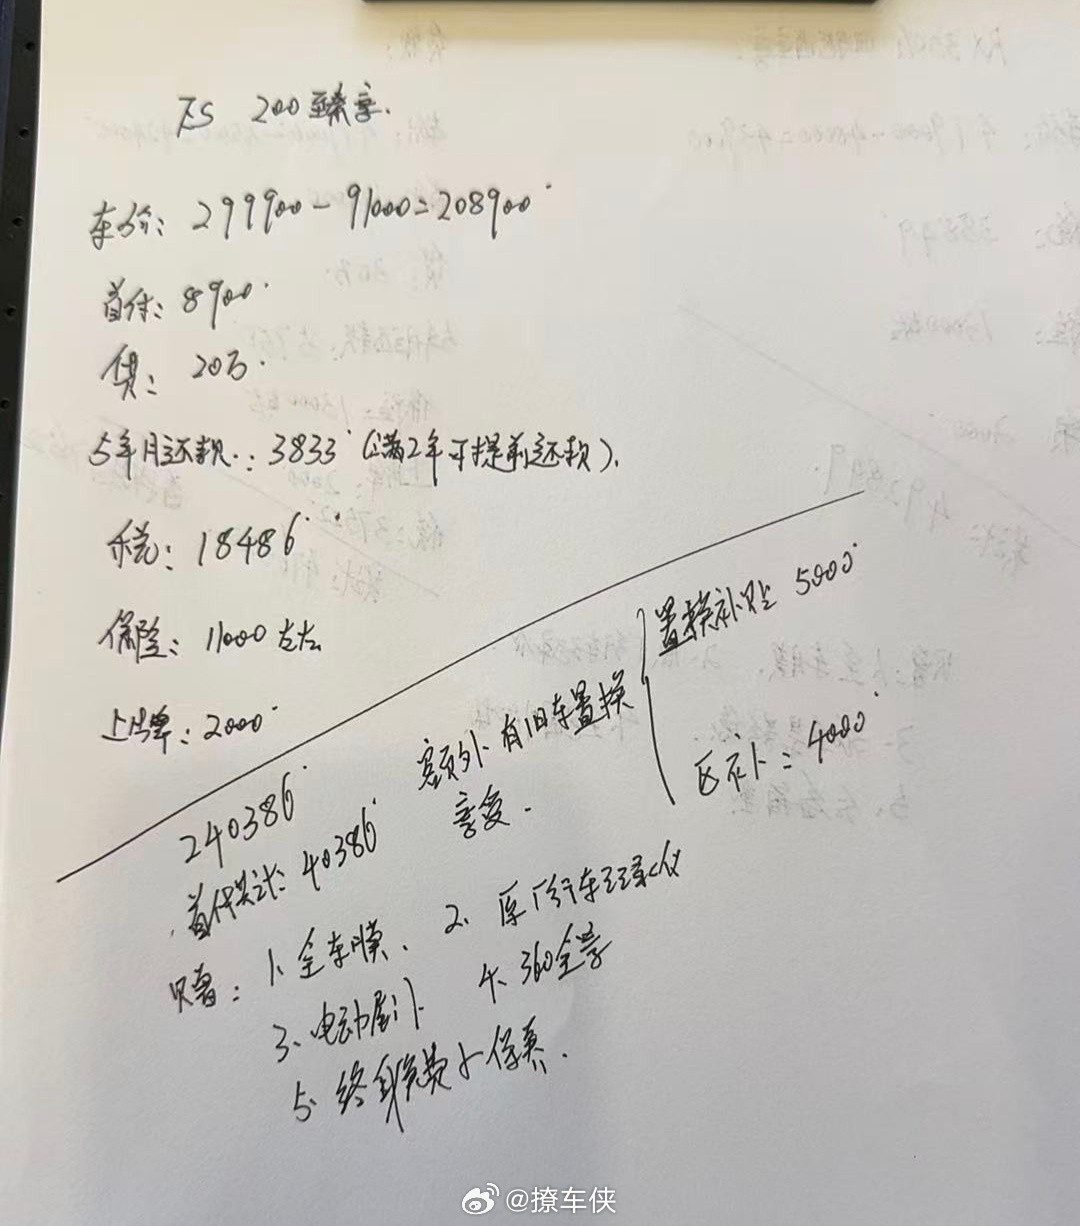 ES 200臻享.
车价: 299900-91000=208900
首付: 8900
贷: 20万
5年月还款: 3833 (满2年可提前还款).
税: 18486
保险: 11000左右
上牌: 2000
240386
首付共计: 40386
额外有旧车置换
享受.
置换补贴 5000
区补: 4000
赠: 1、全车膜、 2、原厂行车记录仪
3、电动尾门 4、360全景
5、终身免费小保养.
@撩车侠